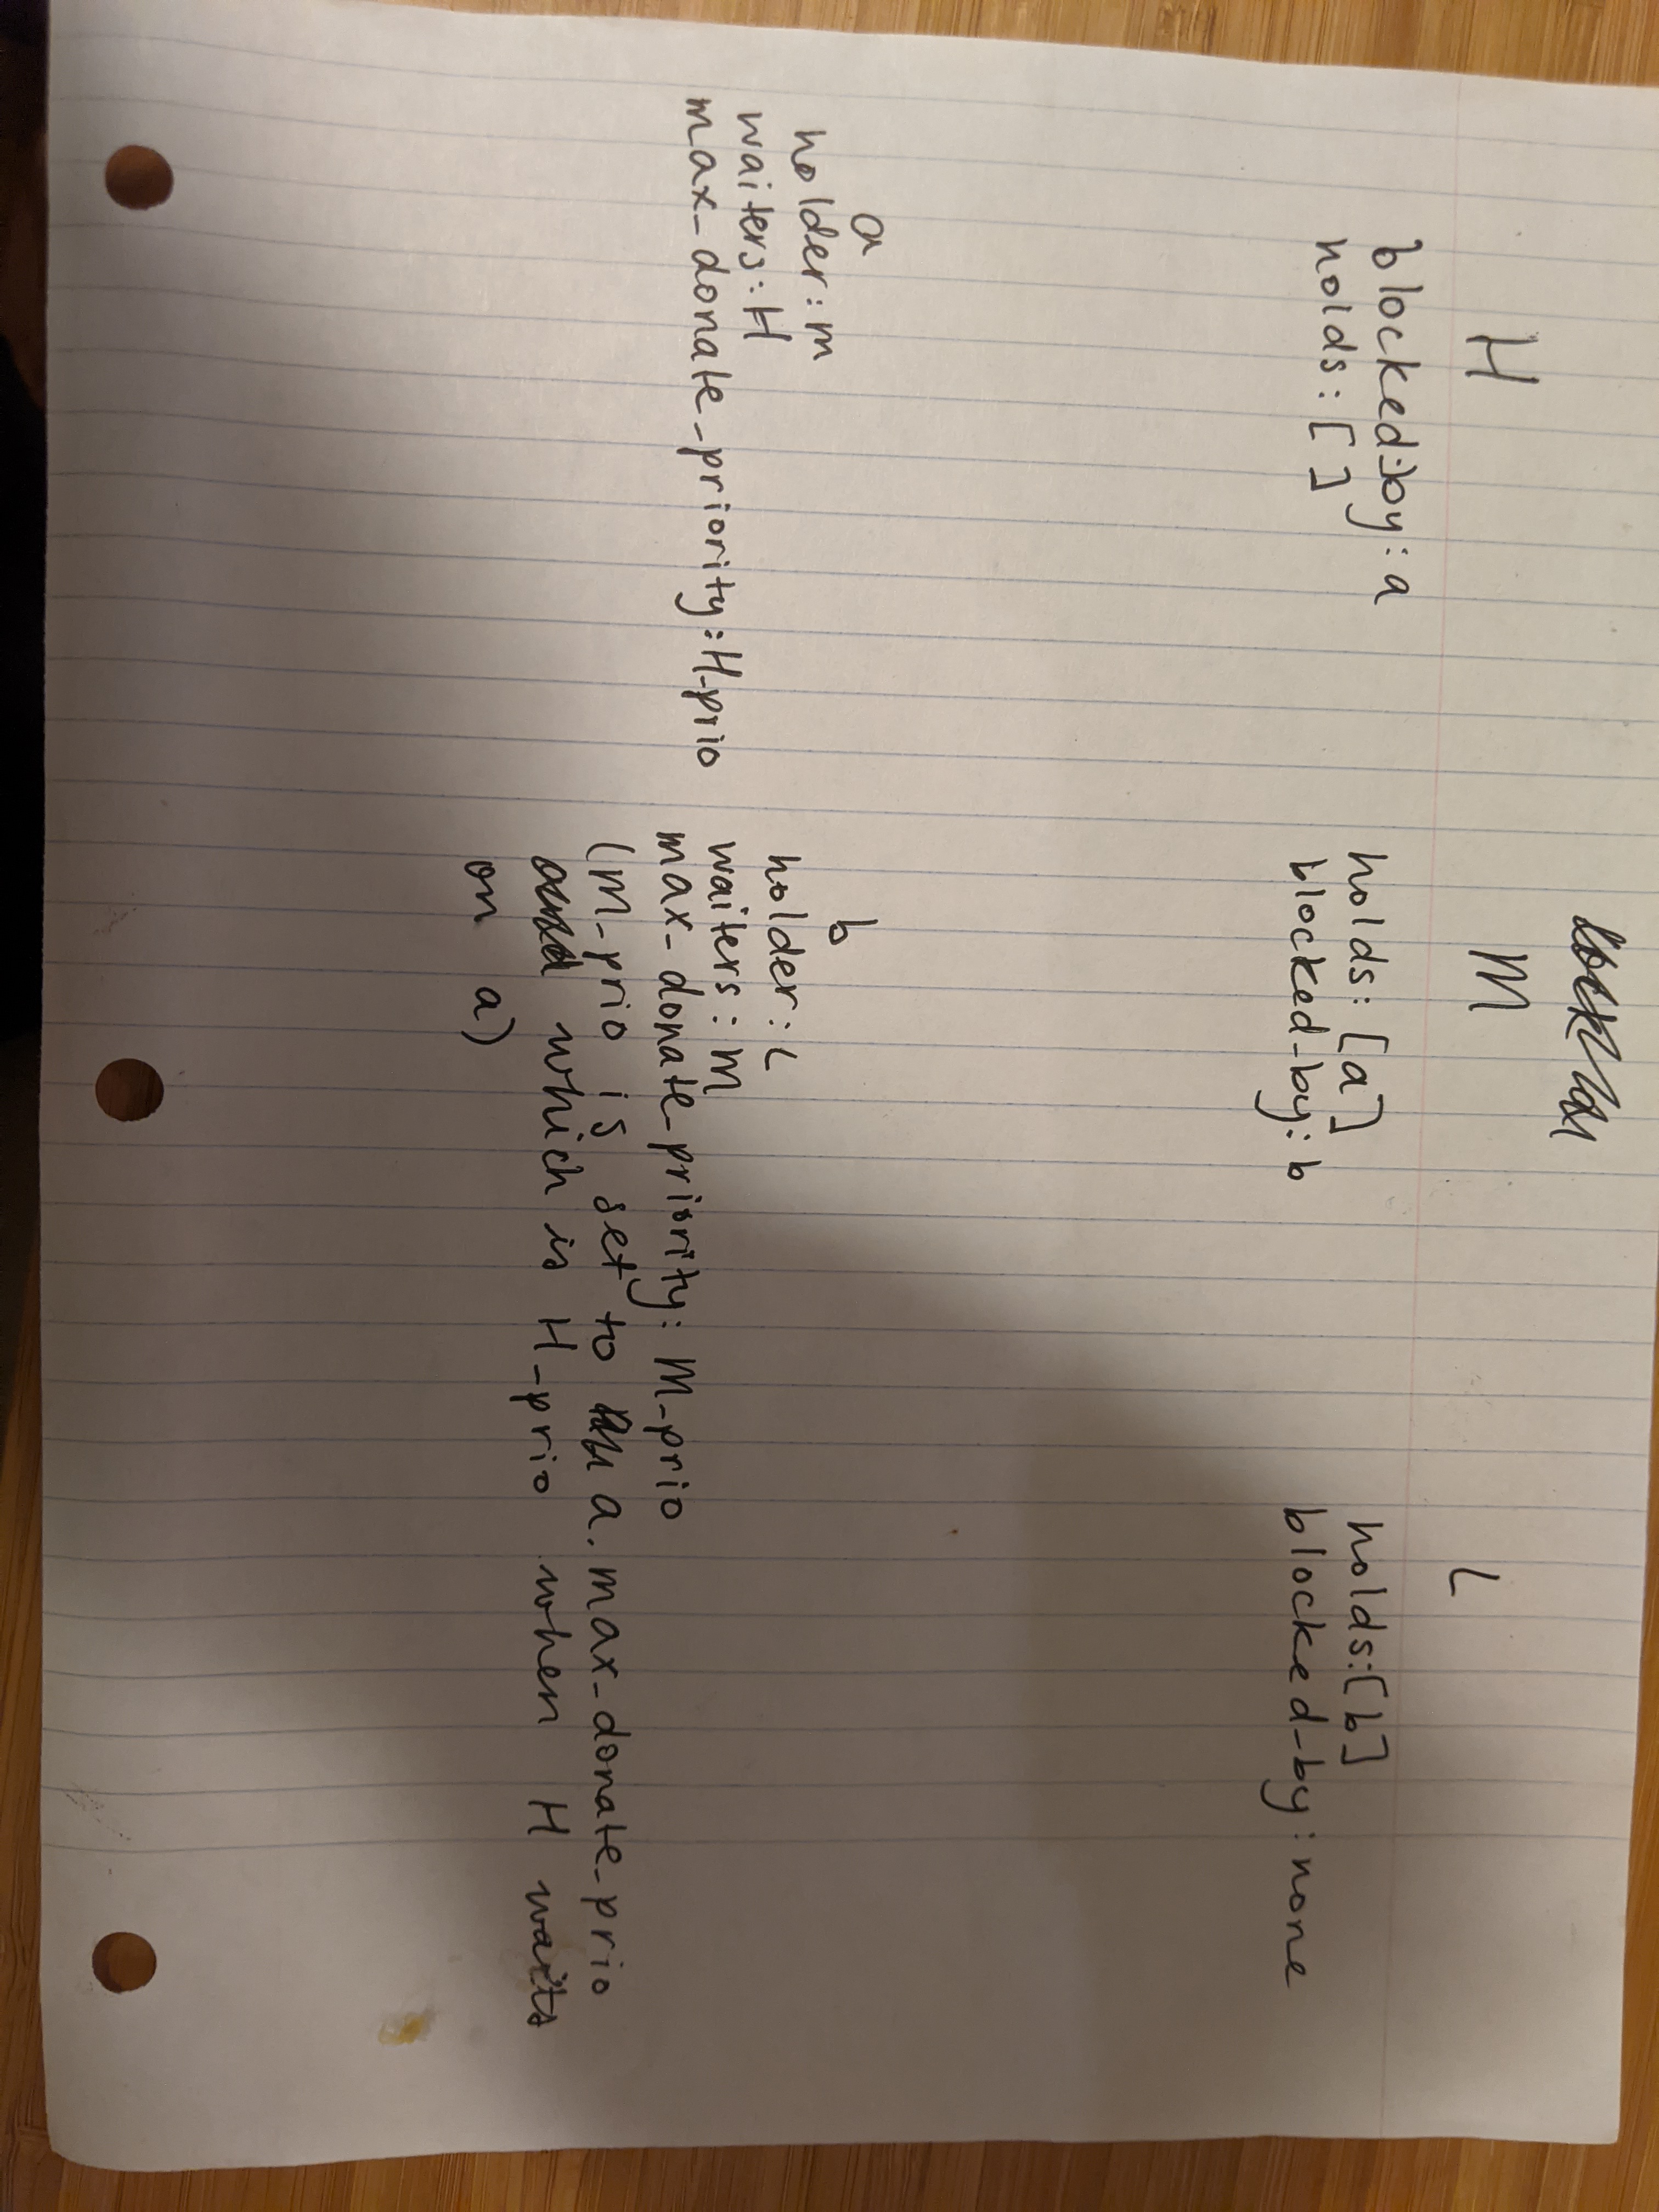 H
blocked-by: a
holds: [ ]
M
holds: [a]
blocked-by: b
L
holds: [b]
blocked-by: none
a
holder: M
waiters: H
max-donate-priority: H-prio
b
holder: L
waiters: M
max-donate-priority: M-prio
(M-prio is set to a.max-donate-prio
which is H-prio when H waits
on a)